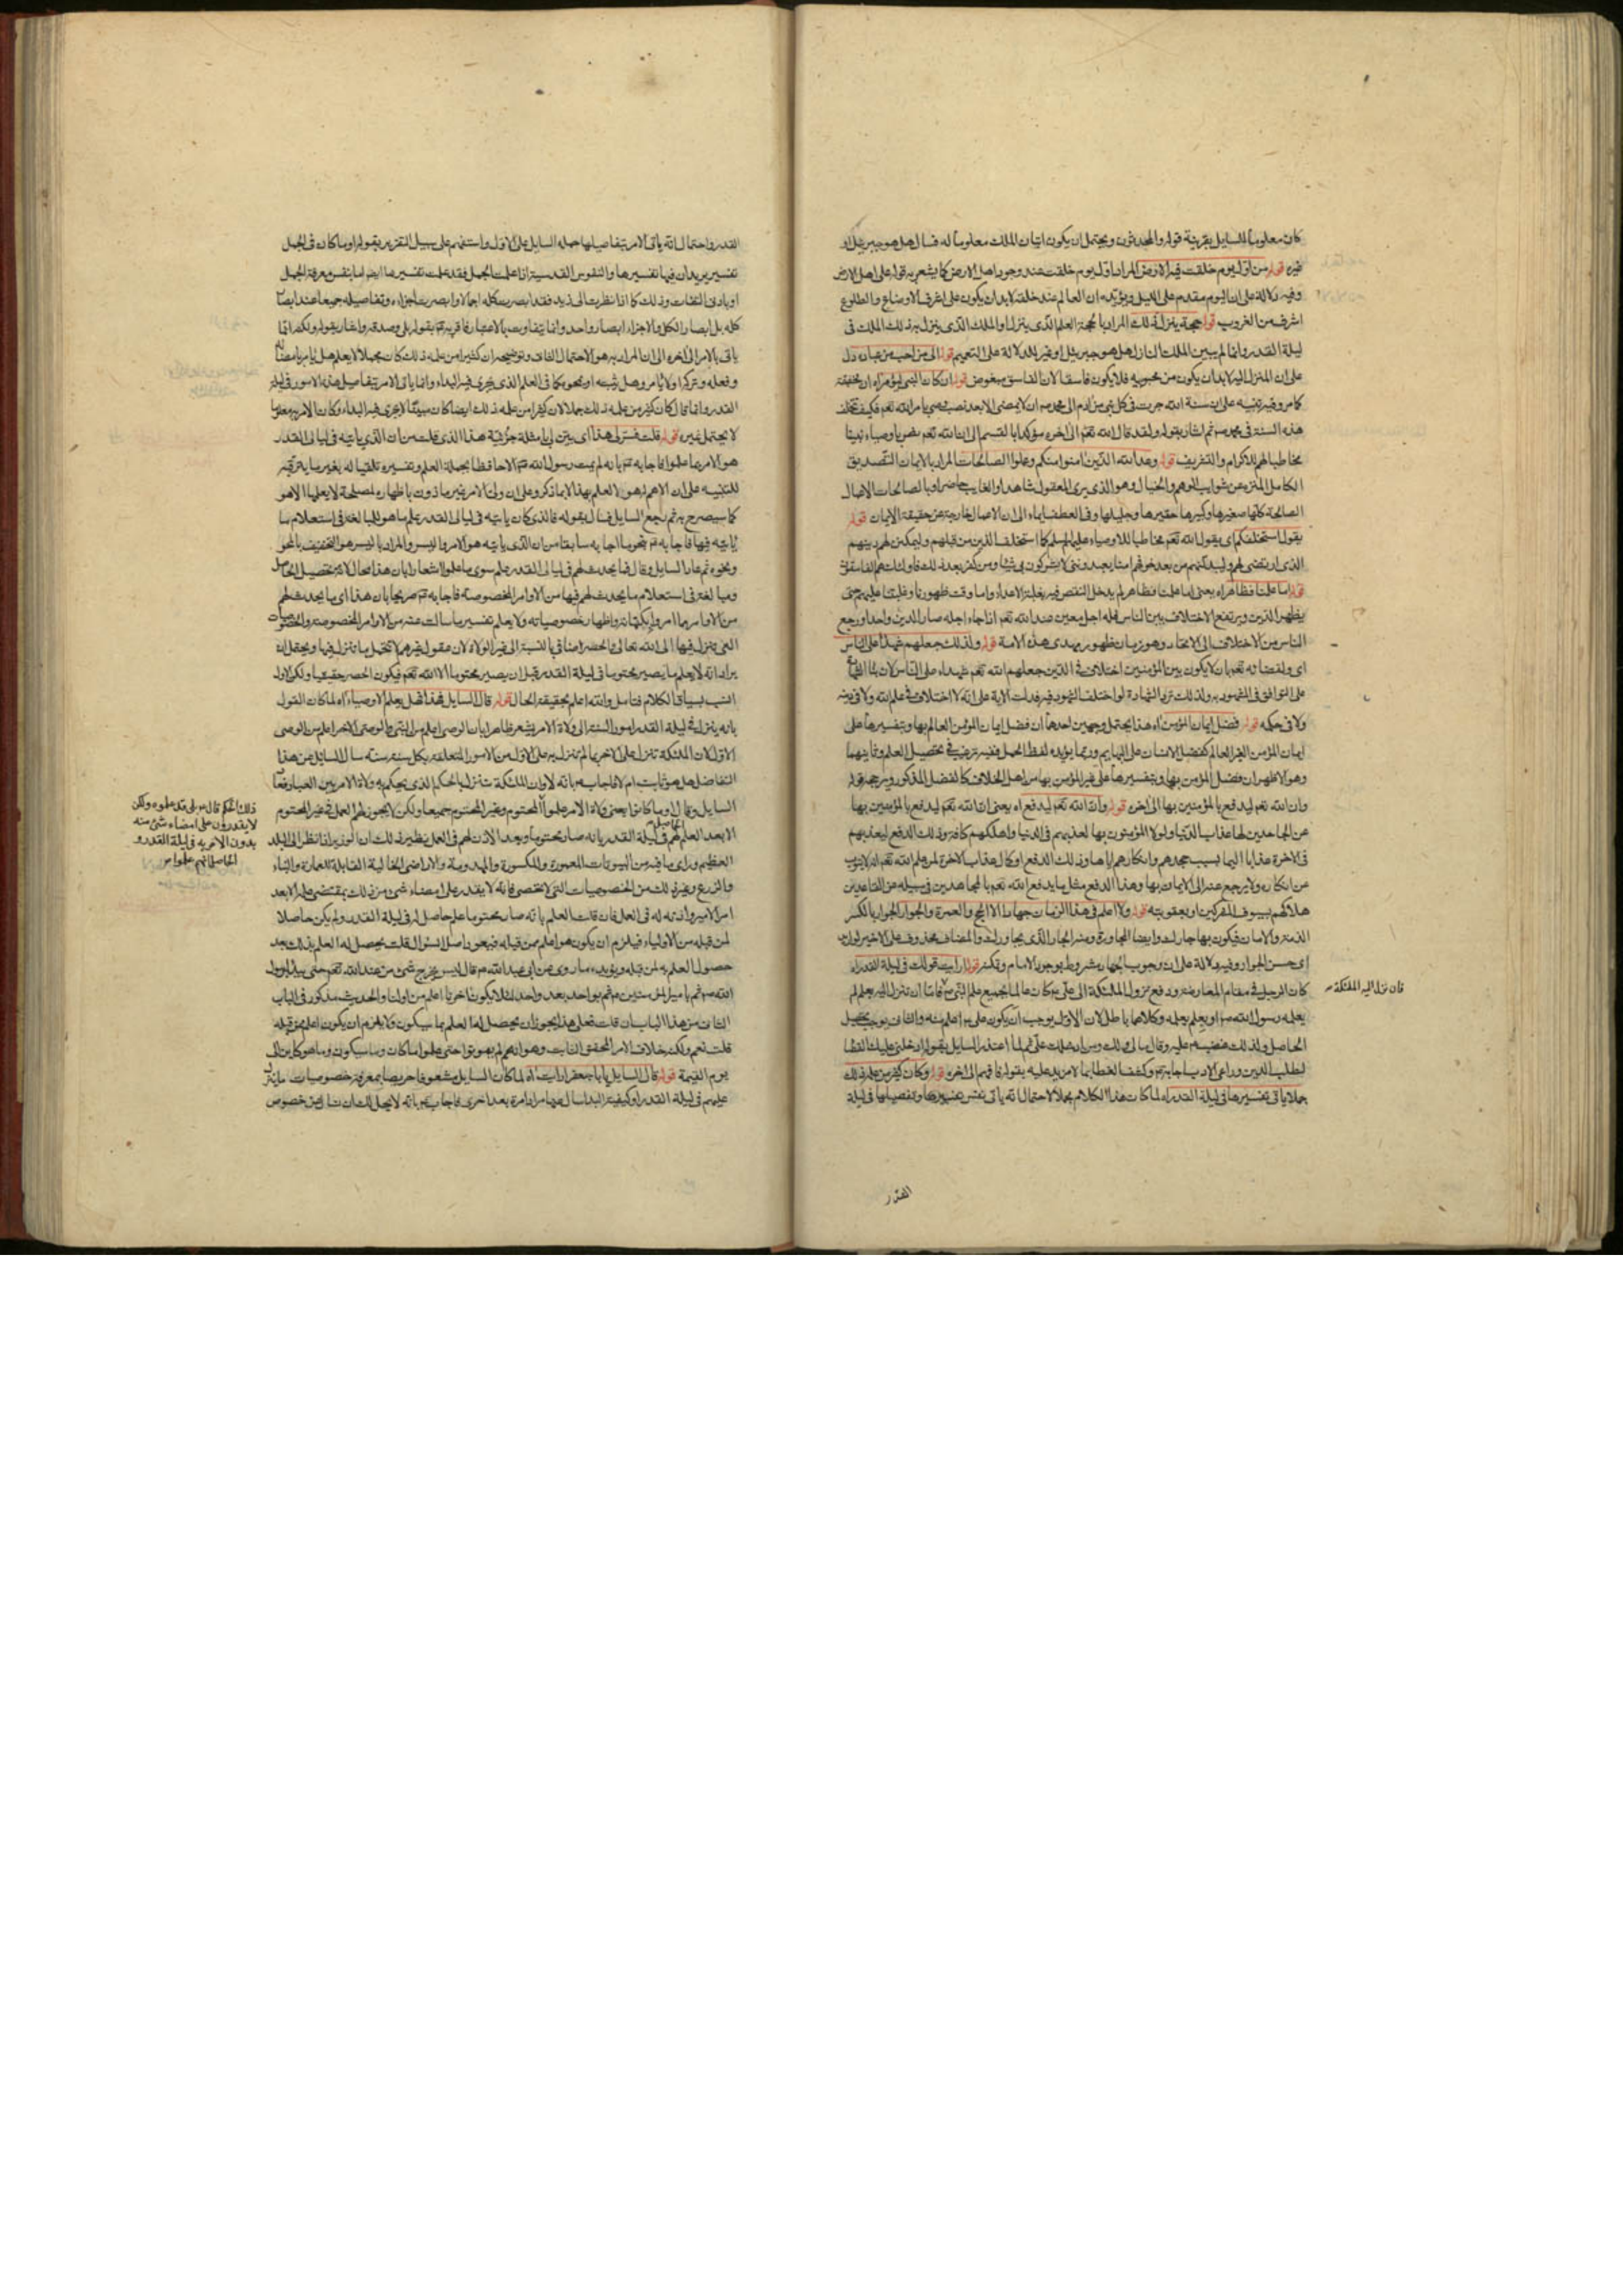 كان معلوما للسايل بقرينة قوله والمحدثون ويحتمل ان يكون اتيان الملك معلوما له فسال هل هو جبرئيل او
غيره قوله من اول يوم خلقت فيه الارض المراد اول يوم خلقت عند وجود اهل الارض كما يشعر به قوله على اهل الارض
وفيه دلالة على ان اليوم مقدم على الليل ويؤيده ان العالم عند خلقه لابد ان يكون على اشرف الاوضاع والطلوع
اشرف من الغروب قوله حجة ينزل ذلك المراد بالحجة العلم الذي ينزل والملك الذي ينزل به ذلك الملك في
ليلة القدر وانما لم يبين الملك النازل هل هو جبرئيل او غيره للدلالة على التعميم قوله الى من احب من عباده دل
على ان المنزل اليه لابد ان يكون من محبوبيه فلا يكون فاسقا لان الفاسق مبغوض قوله ان كان النبي
كامر وفيه تنبيه على ان سنة الله جرت في كل نبي من ادم الى محمد ص ان لا يمضى الا بعد نصب وصي بامر الله تعم فكيف تخلف
هذه السنة في محمد ص ثم اشار بقوله ولقد قال الله تعم الى اخره مؤكدا بالقسم الى ان الله تعم
مخاطبا لهم للاكرام والتشريف قوله وعد الله الذين امنوا منكم وعملوا الصالحات المراد بالايمان التصديق
الكامل المنزه عن شوايب الوهم والخيال وهو الذي يرى المعقول شاهدا والغايب حاضرا وبالصالحات الاعمال
الصالحة كلها صغيرها وكبيرها حقيرها وجليلها وفي العطف ايماء الى ان الاعمال خارجة عن حقيقة الايمان قوله
يقول استخلفكم اي يقول الله تعم مخاطبا للاوصياء عليهم السلم كما استخلف الذين من قبلهم وليمكنن لهم دينهم
الذي ارتضى لهم وليبدلنهم من بعد خوفهم امنا يعبدونني لا يشركون بي شيئا ومن كفر بعد ذلك فاولئك هم الفاسقون
قوله اما علمنا فظاهر اه يعني اما علمنا فظاهر لم يدخل النقص فيه بغلبة الاعداء واما وقت ظهورنا وغلبتنا عليهم حتى
يظهر الدين ويرتفع الاختلاف بين الناس فله اجل معين عند الله تعم اذا جاء اجله صار الدين واحدا ورجع
الناس من الاختلاف الى الاتحاد وهو زمان ظهور مهدي هذه الامة قوله ولذلك جعلهم شهداء على الناس
اي ولقضائه تعم بان لا يكون بين المؤمنين اختلاف في الدين جعلهم الله تعم شهداء على الناس لان بناء الشهادة
على التوافق في المشهود به ولذلك ترد الشهادة لو اختلف الشهود فيه فدلت الاية على انه لا اختلاف في علم الله ولا في دينه
ولا في حكمه قوله فضل ايمان المؤمن اه هذا يحتمل وجهين احدهما ان فضل ايمان المؤمن العالم بها وبتفسيرها على
ايمان المؤمن الغير العالم كفضل الانسان على البهايم وربما يؤيده لفظ الحمل ففيه ترغيب في تحصيل العلم وثانيهما
وهو الاظهر ان فضل المؤمن بها وبتفسيرها على غير المؤمن بها من اهل الخلاف كالفضل المذكور ويرجحه قوله
وان الله تعم ليدفع بالمؤمنين بها الى اخره قوله وان الله تعم ليدفع اه يعني ان الله تعم ليدفع بالمؤمنين بها
عن الجاحدين لها عذاب الدنيا ولولا المؤمنون بها لعذبهم في الدنيا واهلكهم كافة وذلك الدفع ليعذبهم
في الاخرة عذابا اليما بسبب جحدهم وانكارهم اياها وذلك الدفع او كال عذاب الاخرة لمن علم الله تعم انه لا يتوب
عن انكاره ولا يرجع عنه الى الايمان بها وهذا الدفع مثل ما يدفع الله تعم بالمجاهدين في سبيله عن القاعدين
هلاكهم بسيوف المشركين او بعقوبته قوله ولا اعلم في هذا الزمان جهادا الا الحج والعمرة والجوار الجوار بالكسر
الذمة والامان فيكون بها جارك وايضا المجاورة ومنه الجار الذي يجاورك والمضاف محذوف على الاخير
اي حسن الجوار وفيه دلالة على ان وجوب الجهاد مشروط بوجود الامام وتمكنه قوله ارايت قولك في ليلة القدر اه
كان الرجل في مقام المعارضة ودفع نزول الملئكة الى علي ع كان عالما بجميع علم النبي ص فاما ان تنزل اليه بعلم لم
يعلمه رسول الله ص او بعلم يعلمه وكلاهما باطل لان الاول يوجب ان يكون علي ع اعلم منه والثاني يوجب تحصيل
الحاصل ولذلك غضب ع عليه وقال مالي ولك ومن ادخلك علي ثم لما اعتذر السايل بقوله ادخلني عليك القضا
لطلب الدين وراعى الادب اجابه ع وكشف الغطا بما لا مزيد عليه بقوله فافهم الى اخره قوله وكان كثير من علمه ذلك
جملا ياتي تفسيرها في ليلة القدر اه لما كان هذا الكلام مجملا لاحتمال انه ياتي نفس تفسيرها وتفصيلها في ليلة
القدر
فان نزول اليه الملئكة ص
القدر واحتمال انه ياتي الامر بتفاصيلها حمله السايل على الاول واستفهم على سبيل التقرير بقوله او ما كان في الجمل
تفسير يريد ان فيها تفسيرها والنفوس القدسية اذا علمت الجمل فقد علمت تفسيرها ايضا اما بنفس معرفة الجمل
او بادنى التفات وذلك كما اذا نظرت الى زيد فقد ابصرت كله اجمالا وابصرت اجزاءه وتفاصيله جميعا عند ابصار
كله بل ابصار الكل والاجزاء ابصار واحد وانما يتفاوت بالاعتبار فاقر به ع بقوله بلى وصدقه واشار بقوله ولكنه انما
ياتي بالامر الى اخره الى ان المراد به هو الاحتمال الثاني وتوضيحه ان كثيرا من علمه ذلك كان مجملا لا يعلم هل يامر بامضائه
وفعله وتركه او لا يامر وهل يثبته او يمحوه كما في العلم الذي يجري فيه البداء وانما ياتي الامر بتفاصيل هذه الامور في ليلة
القدر وانما قال كان كثير من علمه ذلك جملا لان كثيرا من علمه ذلك ايضا كان مبينا لا يجري فيه البداء وكان الامر به معلوما
لا يحتمل غيره قوله قلت فسر لي هذا اي بين لي بامثلة جزئية هذا الذي قلت من ان الذي ياتيه في ليالي القدر
هو الامر بما علموا فاجابه ع بانه لم يمت رسول الله ص الا حافظا بجملة العلم وتفسيره تلقيا له بغير ما يترقبه
للتنبيه على ان الاهم له هو العلم بهذا لا بما ذكر وعلى ان ولي الامر غير ماذون باظهاره لمصلحة لا يعلمها الا هو
كما سيصرح به ثم رجع السايل فسال بقوله فالذي كان ياتيه في ليالي القدر علم ما هو للمبالغة في استعلام ما
ياتيه فيها فاجابه ع بنحو ما اجابه سابقا من ان الذي ياتيه هو الامر واليسر والمراد باليسر هو التخفيف بالمحو
ونحوه ثم عاد السايل وقال فما يحدث لهم في ليالي القدر علم سوى ما علموا اشعارا بان هذا محال لانه تحصيل الحاصل
ومبالغة في استعلام ما يحدث لهم فيها من الاوامر المخصوصة فاجابه ع تصريحا بان هذا اي ما يحدث لهم
من الاوامر مما امروا بكتمانه واظهار خصوصياته ولا يعلم تفسير ما سالت عنه من الاوامر المخصوصة والخصوصيات
التي تنزل فيها الا الله تعالى فالحصر اضافي بالنسبة الى غير الولاة لان عقول غيرهم لا تحتمل ما ينزل فيها ويحتمل ان
يراد انه لا يعلم ما يصير محتوما في ليلة القدر قبل ان يصير محتوما الا الله تعم فيكون الحصر حقيقيا ولكن الاول
انسب بسياق الكلام فتامل والله اعلم بحقيقة الحال قوله قال السايل فهل يعلم الاوصياء اه لما كان القول
بانه ينزل في ليلة القدر امور السنة الى ولاة الامر يشعر ظاهرا بان الوصي اعلم من النبي والوصي الاخر اعلم من الوصي
الاول لان الملئكة تنزل على الاخر بما لم تنزل به على الاول من الامور المتعلقة بكل سنة سنة سال السايل عن هذا
التفاضل هل هو ثابت ام لا فاجاب ع بانه لا وان الملئكة تنزل بالحكم الذي يحكم به ولاة الامر بين العباد فعاد
السايل وقال او ما كانوا يعني ولاة الامر علموا المحتوم وغير المحتوم جميعا ولكن لا يجوز لهم العمل في غير المحتوم
الا بعد العلم الحاصل لهم في ليلة القدر بانه صار محتوما وبعد الاذن لهم في العمل نظير ذلك ان الوزير اذا نظر الى البلد
العظيم وراى ما فيه من البيوتات المعمورة والمكسورة والمهدومة والاراضي الخالية القابلة للعمارة والبناء
والزرع وغير ذلك من الخصوصيات التي لا تحصى فانه لا يقدر على امضاء شئ من ذلك بمقتضى علمه الا بعد
امر الامير واذنه له في العمل فان قلت العلم بانه صار محتوما علم حاصل له في ليلة القدر ولم يكن حاصلا
لمن قبله من الاولياء فيلزم ان يكون هو اعلم ممن قبله فيعود اصل السؤال قلت يحصل له العلم بذلك بعد
حصول العلم به لمن قبله ويؤيده ما روي عن ابي عبد الله ع قال ليس يخرج شئ من عند الله تعم حتى يبدا برسول
الله ص ثم بامير المؤمنين ع ثم بواحد بعد واحد لئلا يكون اخرنا اعلم من اولنا والحديث مذكور في الباب
الثاني من هذا الباب فان قلت فعلى هذا يجوز ان يحصل لنا العلم بما سيكون ولا يلزم ان يكون اعلم ممن قبله
قلت نعم ولكنه خلاف الامر المحقق الثابت وهو انهم لم يموتوا حتى علموا ما كان وما سيكون وما هو كاين الى
يوم القيمة قوله قال السايل يا ابا جعفر ارايت اه لما كان السايل مشعوفا حريصا بمعرفة خصوصيات ما ينزل
عليهم في ليلة القدر وكيفية البداء سال عنها مرارا مرة بعد اخرى فاجاب ع بانه لا يحل لك ان تسال عن خصوص
ذلك الحكم قال ع بلى قد علموه ولكن
لا يقدرون على امضاء شئ منه
بدون الامر به في ليلة القدر و
الحاصل انهم علموا ص